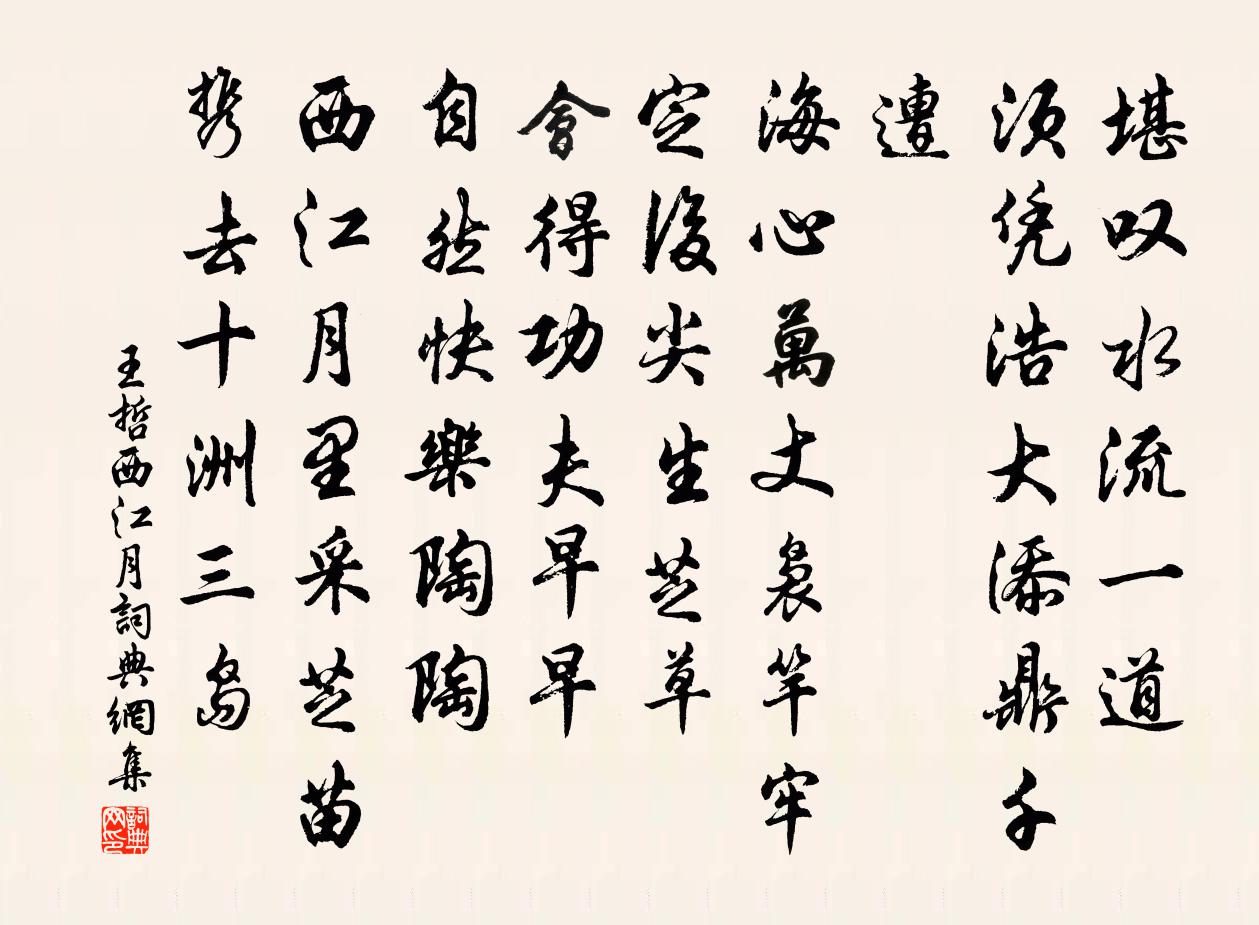 堪叹水流一道
须凭浩大添鼎千
遭
海心萬丈袅竿牢
定後尖生芝草
會得功夫早早
自然快樂陶陶
西江月里采芝苗
携去十洲三岛
王哲西江月詞典網集
詞典网印